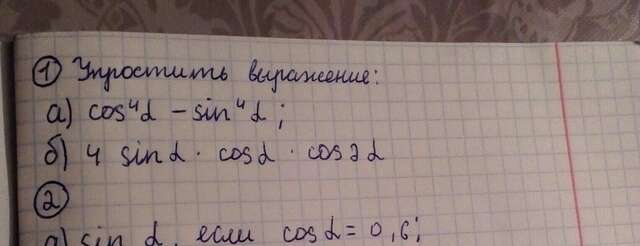 ① Упростить выражение:
а) cos⁴α – sin⁴α ;
б) 4 sin α · cos α · cos 2α
②
а) sin α, если cos α = 0,6;